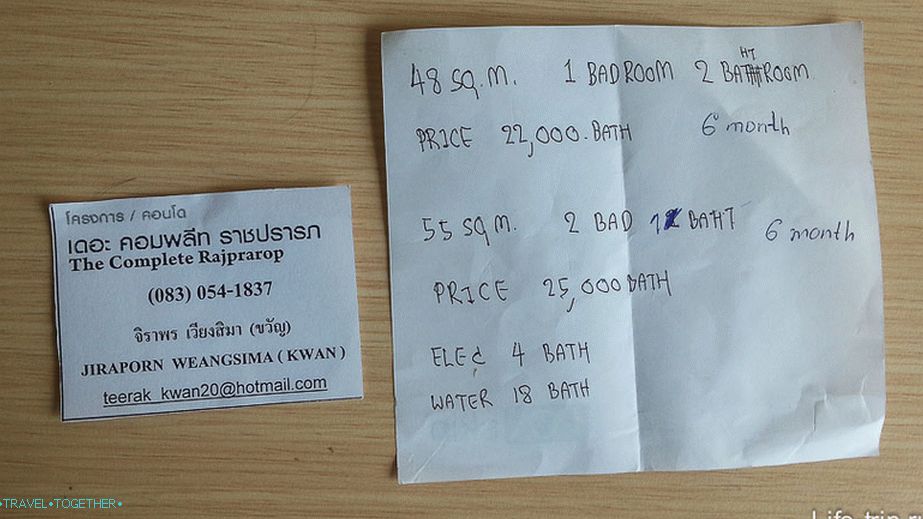 โครงการ / คอนโด
เดอะ คอมพลีท ราชปรารภ
The Complete Rajprarop
(083) 054-1837
จิราพร เวียงสิมา (ขวัญ)
JIRAPORN WEANGSIMA ( KWAN )
teerak_kwan20@hotmail.com
48 SQ.M. 1 BADROOM 2 BATHROOM
PRICE 22,000.BATH 6 month
55 SQM. 2 BAD 1 BAHT 6 month
PRICE 25,000 BATH
ELEC 4 BATH
WATER 18 BATH
•TRAVEL•TOGETHER•